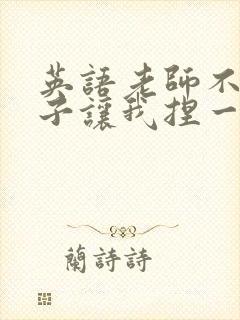 英語老師不
子讓我捏一
蘭詩詩